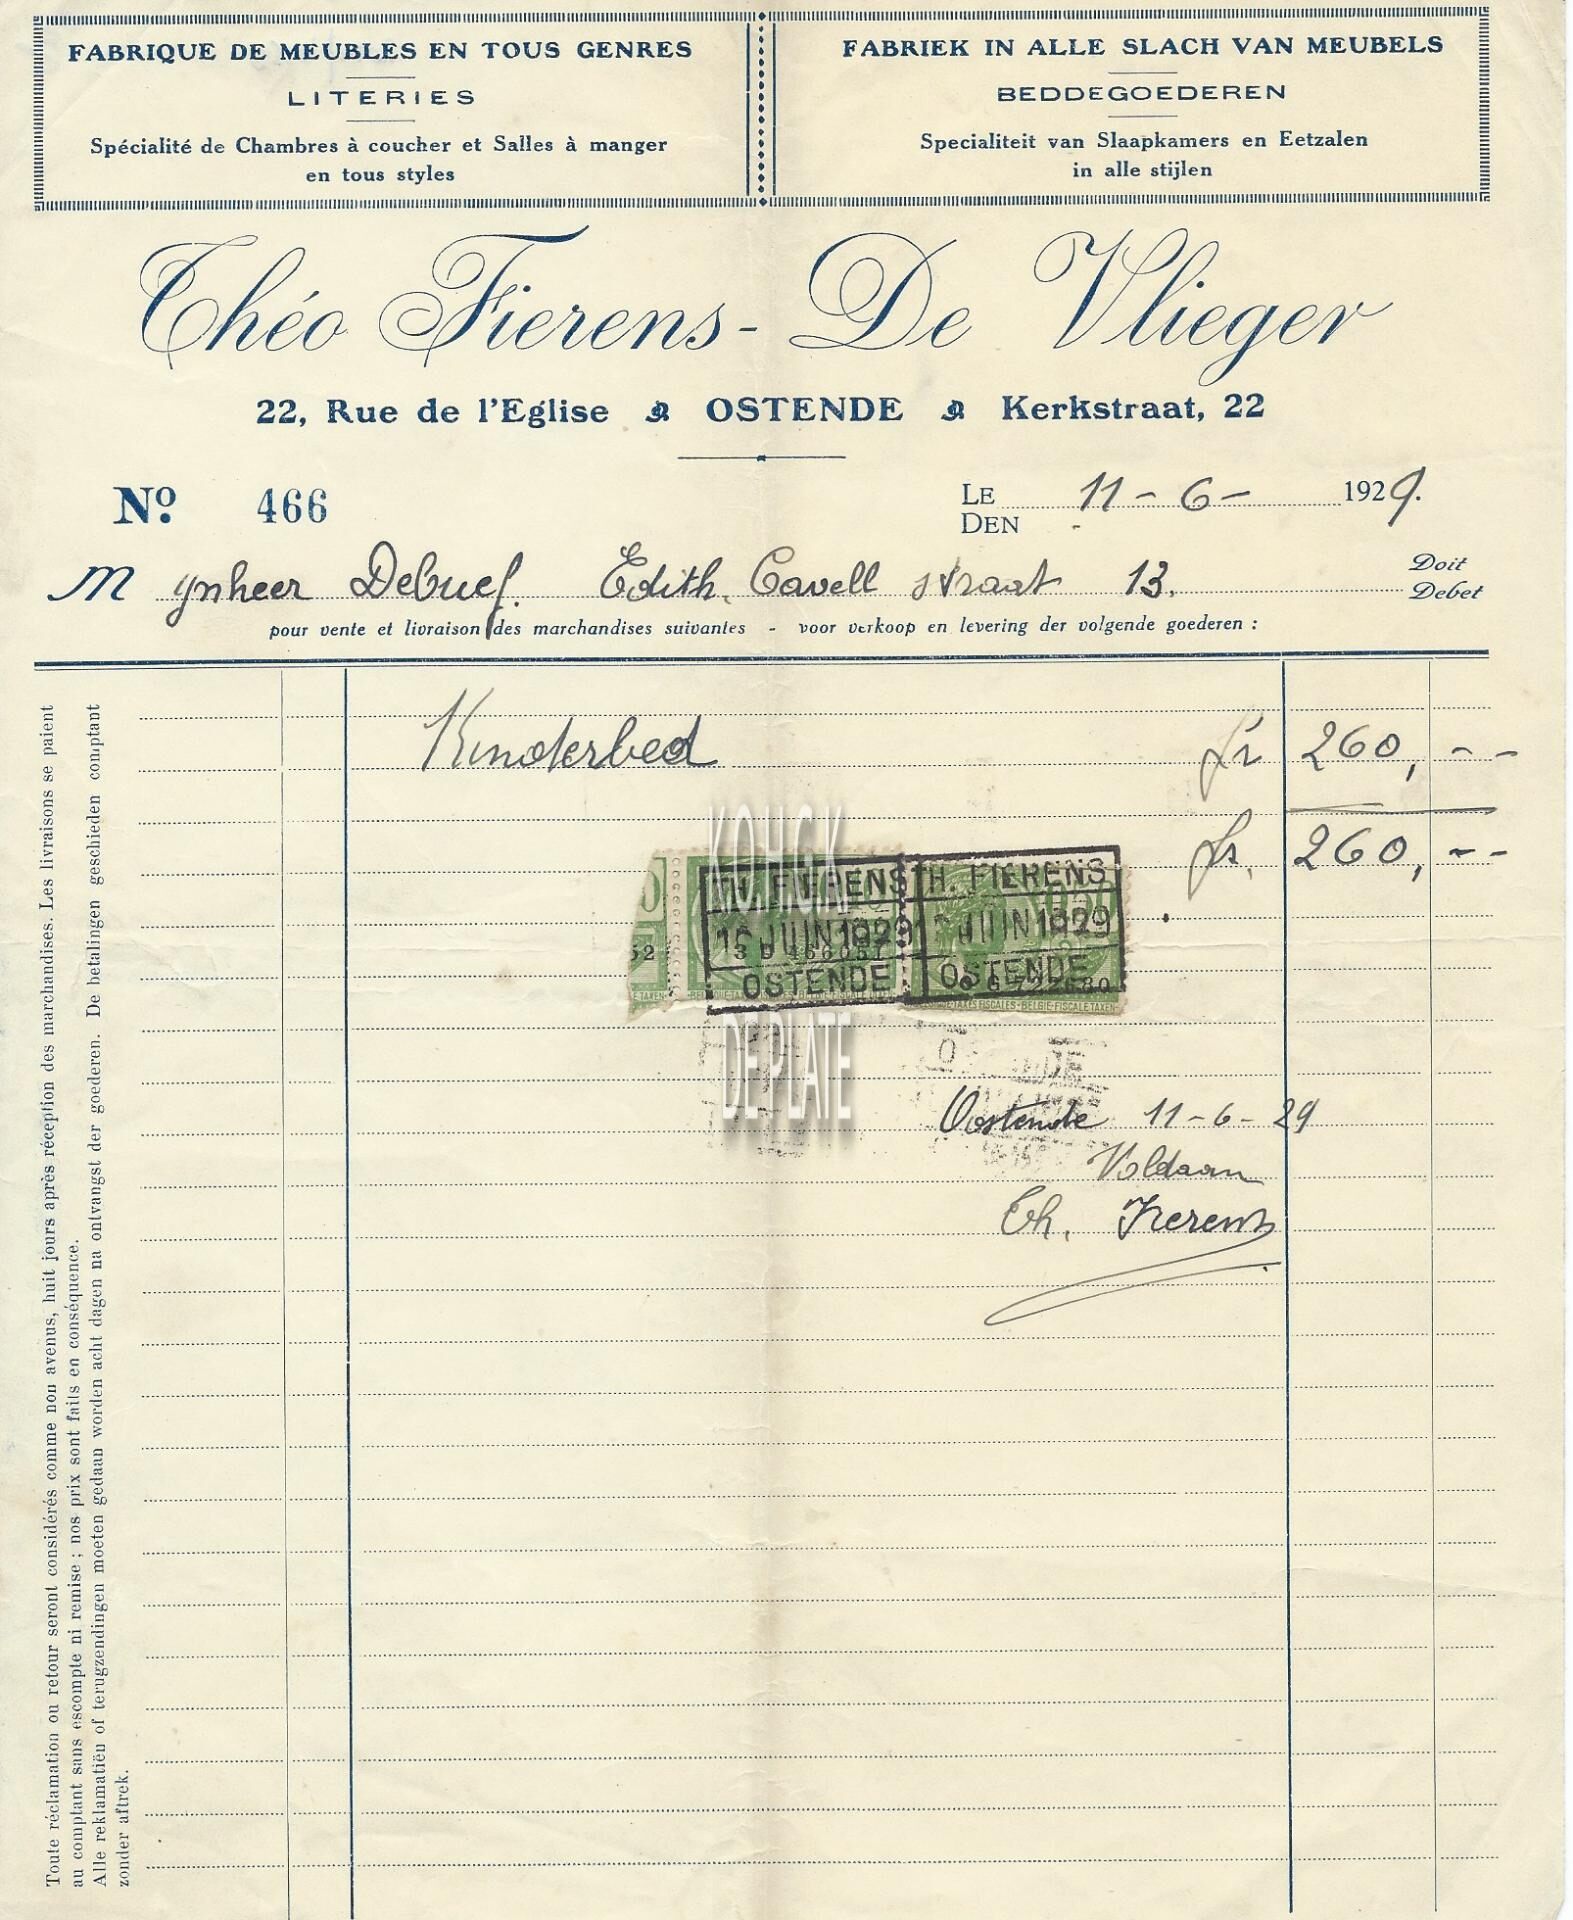 FABRIQUE DE MEUBLES EN TOUS GENRES
LITERIES
Spécialité de Chambres à coucher et Salles à manger
en tous styles
FABRIEK IN ALLE SLACH VAN MEUBELS
BEDDEGOEDEREN
Specialiteit van Slaapkamers en Eetzalen
in alle stijlen
Théo Fierens - De Vlieger
22, Rue de l'Eglise OSTENDE Kerkstraat, 22
No. 466
LE 11 - 6 - 1929.
DEN
Mynheer Debuef. Edith. Cavell straat 13. Doit
Debet
pour vente et livraison des marchandises suivantes - voor verkoop en levering der volgende goederen :
Kinderbed fr 260, - -
fr. 260, - -
KOHGK
TH. FIERENS TH. FIERENS
JUIN 1929 JUIN 1929
3 D 466051
OSTENDE OSTENDE
52
TAXES FISCALES - BELGIE - FISCALE TAXEN
DE PLATE
Oostende 11 - 6 - 29
Voldaan
Th. Fierens
Toute réclamation ou retour seront considérés comme non avenus, huit jours après réception des marchandises. Les livraisons se paient
au comptant sans escompte ni remise ; nos prix sont faits en conséquence.
Alle reklamatiën of terugzendingen moeten gedaan worden acht dagen na ontvangst der goederen. De betalingen geschieden comptant
zonder aftrek.